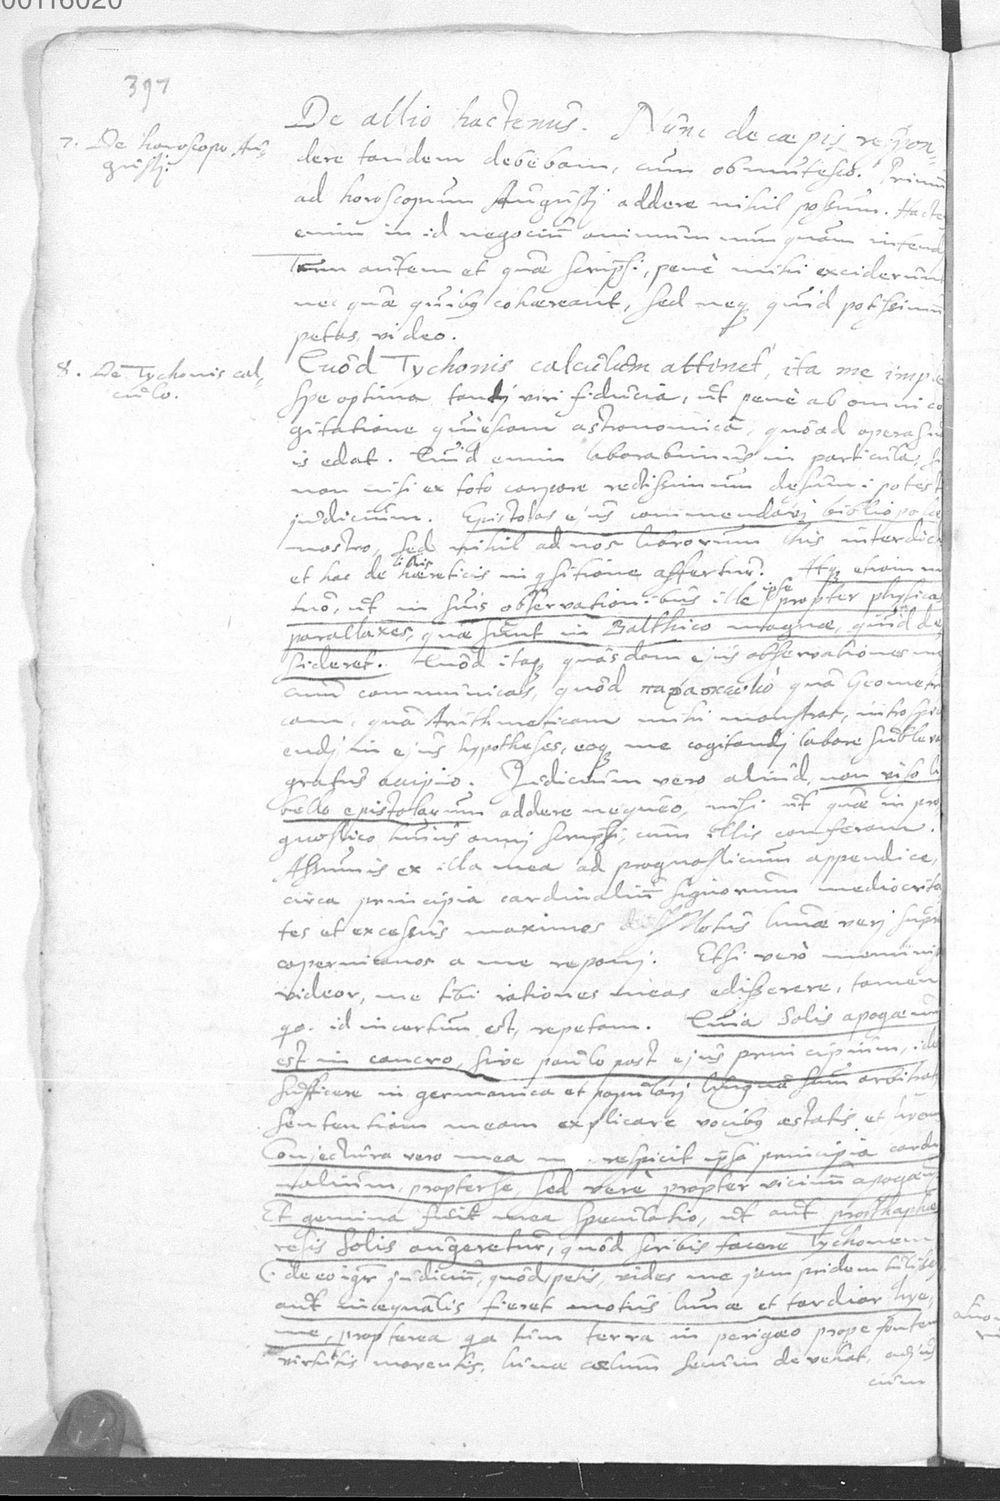 00116020
397
De allio hactenus. Nunc de cæpis respon-
7. De horoscopo Au-
gusti.
dere tandem debebam, cum obmutesco. Primum
ad horoscopum Augusti addere nihil possum. Hacte
enim in id negocium animum nunquam intend
Tum autem et quæ scripsi, penè mihi exciderunt
nec quæ quibus cohæreant, sed neque quid potissimum
petas video.
8. De Tychonis cal-
culo.
Quod Tychonis calculum attinet, ita me imple
spe optima tanti viri fiducia, ut penè ab omni co
gitatione quiescam astronomica, quoad opera su
is edat. Quid enim laborabimus in particula,
non nisi ex toto corpore rectissimum desumi potest
judicium. Epistolas ejus commendavi bibliopolæ
nostro, sed nihil ad nos librorum his interdic
et hac de libris hæreticis inquisitione affertur. Itaque etiam
tuo, ut in suis observationibus ille ipse propter physicas
parallaxes, quæ sunt in Balthico magnæ, quid de
sideret. Quod itaque quasdam ejus observationes me
cum communicas, quod tam Geometri
cam, quam Arithmeticam mihi monstrat, introspici
endi in ejus hypotheses, eoque me cogitandi labore subleva
gratus accipio. Judicium vero aliud, non viso li
bello epistolarum addere nequeo, nisi ut quæ in pro
gnostico hujus anni scripsi, cum illis conferam.
Assumis ex illa mea ad prognosticum appendice,
circa principia cardinalium signorum mediocrita
tes et excessus maximos Motus lunæ veri supra
copernicanos a me reponi. Etsi verò meminis
videor, me tibi rationes meas edisserere, tamen
quia id incertum est, repetam. Quia Solis apogæum
est in cancro, sive paulo post ejus principium, ideo
sufficere in germanica et populari lingua sum arbitrat
sententiam meam explicare vocibus æstatis et hyem
Conjectura vero mea respicit ipsa principia cardi
nalium, propter se, sed verè propter vicinum apogæu
Et gemina fuit mea speculatio, ut aut prosthaphæ
resis Solis augeretur, quod scribis facere Tychonem
(de eo igitur judicium, quod petis, vides me jam pridem tulisse)
aut inæqualis fieret motus lunæ et tardior hye-
me, propterea quia tum terra in perigæo prope fontem
virtutis moventis, lunæ cælum secum devehat,
cium